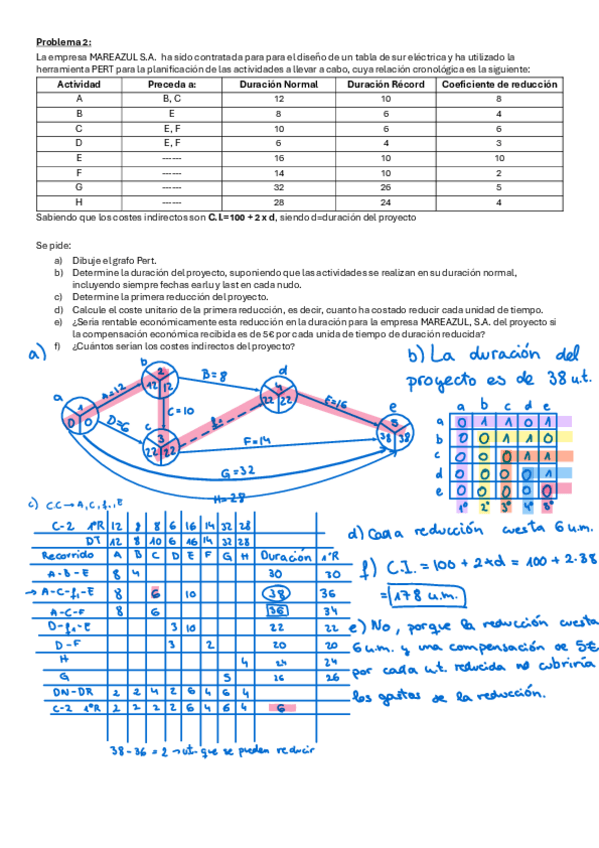 Problema 2:
La empresa MAREAZUL S.A. ha sido contratada para para el diseño de un tabla de sur eléctrica y ha utilizado la
herramienta PERT para la planificación de las actividades a llevar a cabo, cuya relación cronológica es la siguiente:
Actividad Preceda a: Duración Normal Duración Récord Coeficiente de reducción
A B, C 12 10 8
B E 8 6 4
C E, F 10 6 6
D E, F 6 4 3
E ------ 16 10 10
F ------ 14 10 2
G ------ 32 26 5
H ------ 28 24 4
Sabiendo que los costes indirectos son C.I.= 100 + 2 x d, siendo d=duración del proyecto
Se pide:
a) Dibuje el grafo Pert.
b) Determine la duración del proyecto, suponiendo que las actividades se realizan en su duración normal,
incluyendo siempre fechas earlu y last en cada nudo.
c) Determine la primera reducción del proyecto.
d) Calcule el coste unitario de la primera reducción, es decir, cuanto ha costado reducir cada unidad de tiempo.
e) ¿Seria rentable económicamente esta reducción en la duración para la empresa MAREAZUL, S.A. del proyecto si
la compensación económica recibida es de 5€ por cada unida de tiempo de duración reducida?
f) ¿Cuántos serian los costes indirectos del proyecto?
a)
b) La duración del
proyecto es de 38 u.t.
a 1 0 0
b 2 12 12
c 3 22 22
d 4 22 22
e 5 38 38
A=12
B=8
C=10
D=6
f1
E=16
F=14
G=32
H=28
a b c d e
a 0 1 1 0 1
b 0 0 1 1 0
c 0 0 0 1 1
d 0 0 0 0 1
e 0 0 0 0 0
1º 2º 3º 4º 5º
c) C.C → A, C, f1, E
C-2 1ºR 12 8 8 6 16 14 32 28
DT 12 8 10 6 16 14 32 28
Recorrido A B C D E F G H Duración 1ºR
A-B-E 8 4 30 30
→ A-C-f1-E 8 6 10 38 36
A-C-F 8 6 36 34
D-f1-E 3 10 22 22
D-F 3 2 20 20
H 4 24 24
G 5 26 26
DN-DR 2 2 4 2 6 4 6 4
C-2 1ºR 2 2 2 2 6 4 6 4 6
38-36 = 2 → ut. que se pueden reducir
d) Cada reducción cuesta 6 u.m.
f) C.I. = 100 + 2xd = 100 + 2·38
= 178 u.m.
e) No, porque la reducción cuesta
6 u.m. y una compensación de 5€
por cada u.t. reducida no cubriría
los gastos de la reducción.